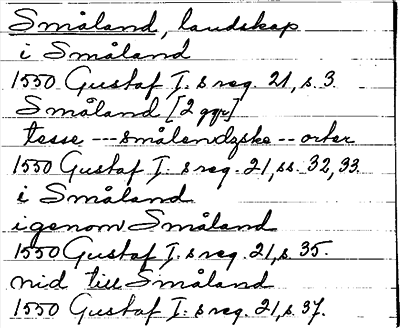 Småland, landskap
i Småland
1550 Gustaf I:s reg. 21, s. 3.
Småland [2 ggr]
tesse --- smålendzske -- orter
1550 Gustaf I:s reg. 21, ss. 32, 33.
i Småland
igenom Småland
1550 Gustaf I:s reg. 21, s. 35.
nid till Småland
1550 Gustaf I:s reg. 21, s. 37.